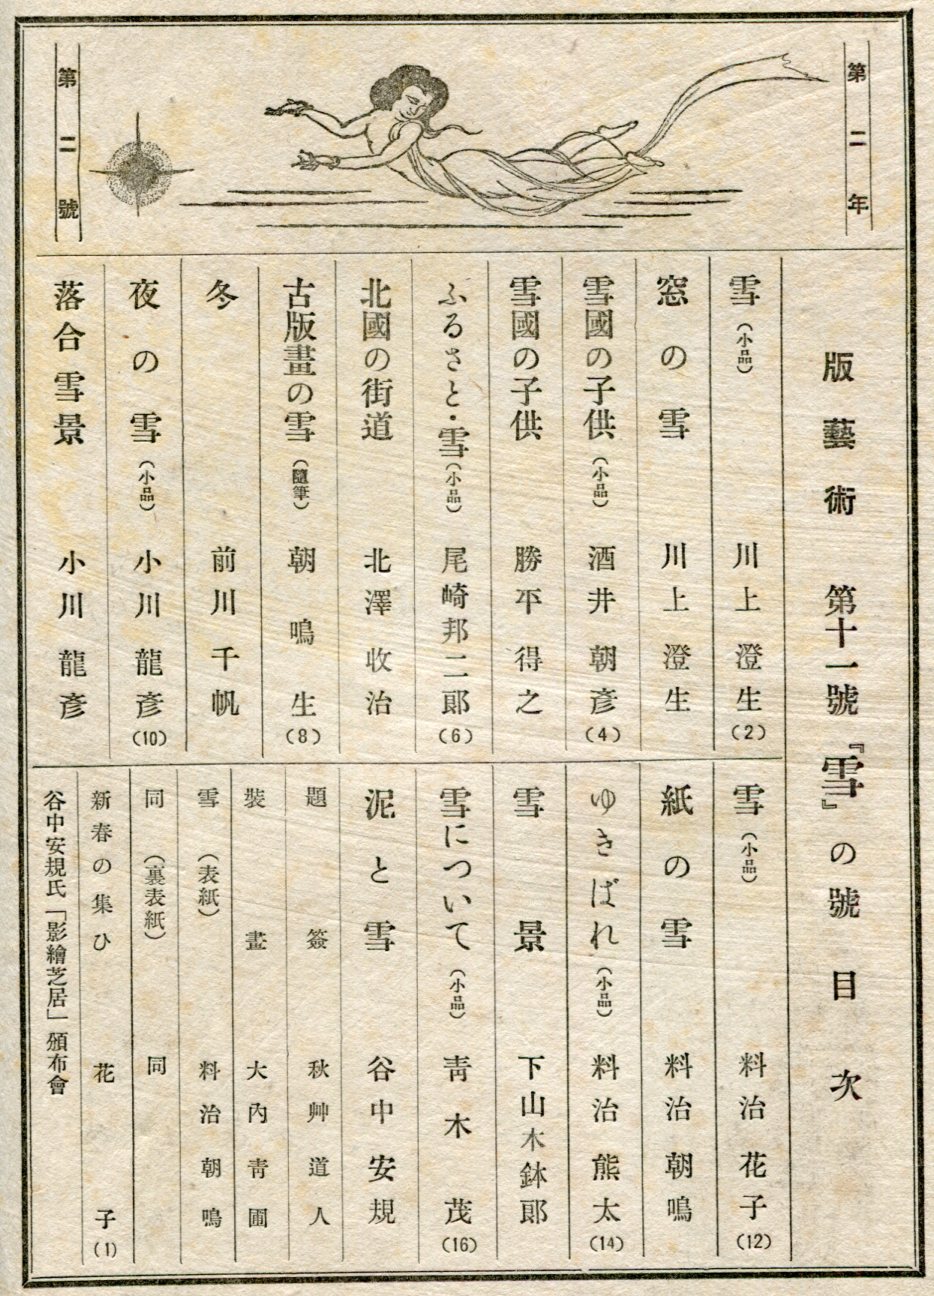 第二年
第二號
版藝術 第十一號『雪』の號 目次
雪(小品) 川上澄生(2)
窓の雪 川上澄生
雪國の子供(小品) 酒井朝彦(4)
雪國の子供 勝平得之
ふるさと・雪(小品) 尾崎邦二郎(6)
北國の街道 北澤收治
古版畫の雪(隨筆) 朝鳴生(8)
冬 前川千帆
夜の雪(小品) 小川龍彦(10)
落合雪景 小川龍彦
雪(小品) 料治花子(12)
紙の雪 料治朝鳴
ゆきばれ(小品) 料治熊太(14)
雪景 下山木鉢郎
雪について(小品) 靑木茂(16)
泥と雪 谷中安規
題簽 秋艸道人
裝畫 大內靑圃
雪(表紙) 料治朝鳴
同(裏表紙) 同
新春の集ひ 花子(1)
谷中安規氏「影繪芝居」頒布會